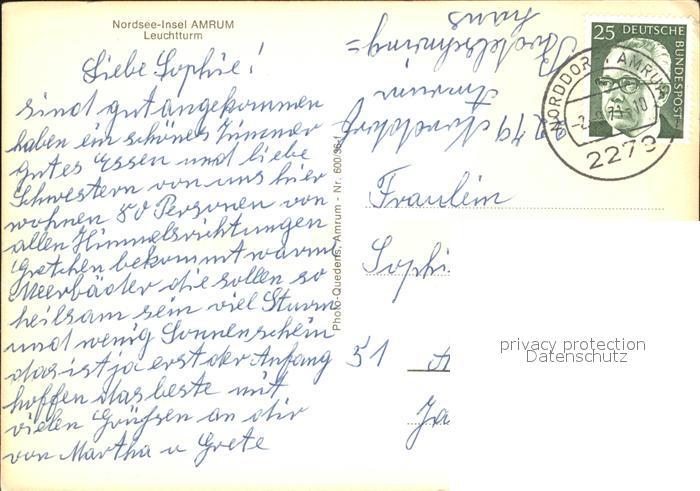 Nordsee-Insel AMRUM
Leuchtturm
Liebe Sophie!
sind gut angekommen
haben ein schönes Zimmer
gutes Essen und liebe
Schwestern von uns hier
wohnen 80 Personen von
allen Himmelsrichtungen
Gretchen bekommt warme
Meerbäder die sollen so
heilsam sein viel Sturm
und wenig Sonnenschein
das ist ja erst der Anfang
hoffen das beste mit
vielen Grüßen an dir
von Martha u Grete
Photo-Quedens, Amrum - Nr. 600/364
2279 Norddorf
Amrum
Bodelschwingh=
haus
25 DEUTSCHE BUNDESPOST
NORDDORF AMRUM
2279
Fräulein
Sophi
51 A
Ja
privacy protection
Datenschutz